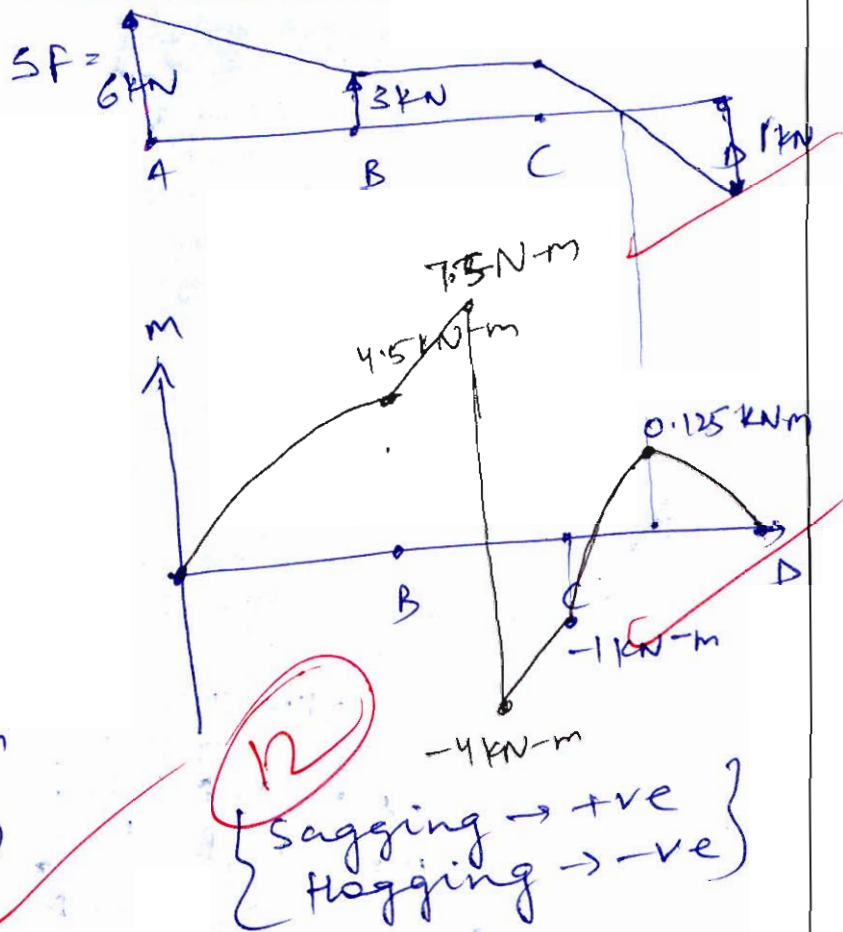 SF =
6 kN
3 kN
1 kN
A
B
C
D
7.5 N-m
4.5 kN-m
M
0.125 KNm
B
C
D
-1 kN-m
-4 kN-m
12
{ Sagging → +ve }
{ Hogging → -ve }